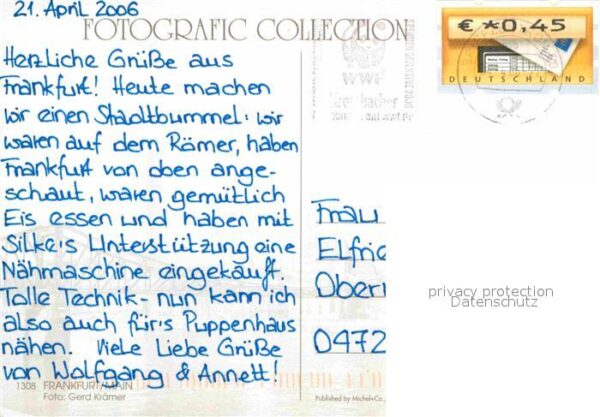 21. April 2006
FOTOGRAFIC COLLECTION
€ *0,45
DEUTSCHLAND
WWF
Krombacher
Herzliche Grüße aus
Frankfurt! Heute machen
wir einen Stadtbummel: wir
waren auf dem Römer, haben
Frankfurt von oben ange-
schaut, waren gemütlich
Eis essen und haben mit
Silke's Unterstützung eine
Nähmaschine eingekauft.
Tolle Technik - nun kann ich
also auch für's Puppenhaus
nähen. Viele Liebe Grüße
von Wolfgang & Annett!
Frau
Elfrie
Ober
0472
privacy protection
Datenschutz
1308 FRANKFURT/MAIN
Foto: Gerd Krämer
Published by Michel+Co.,